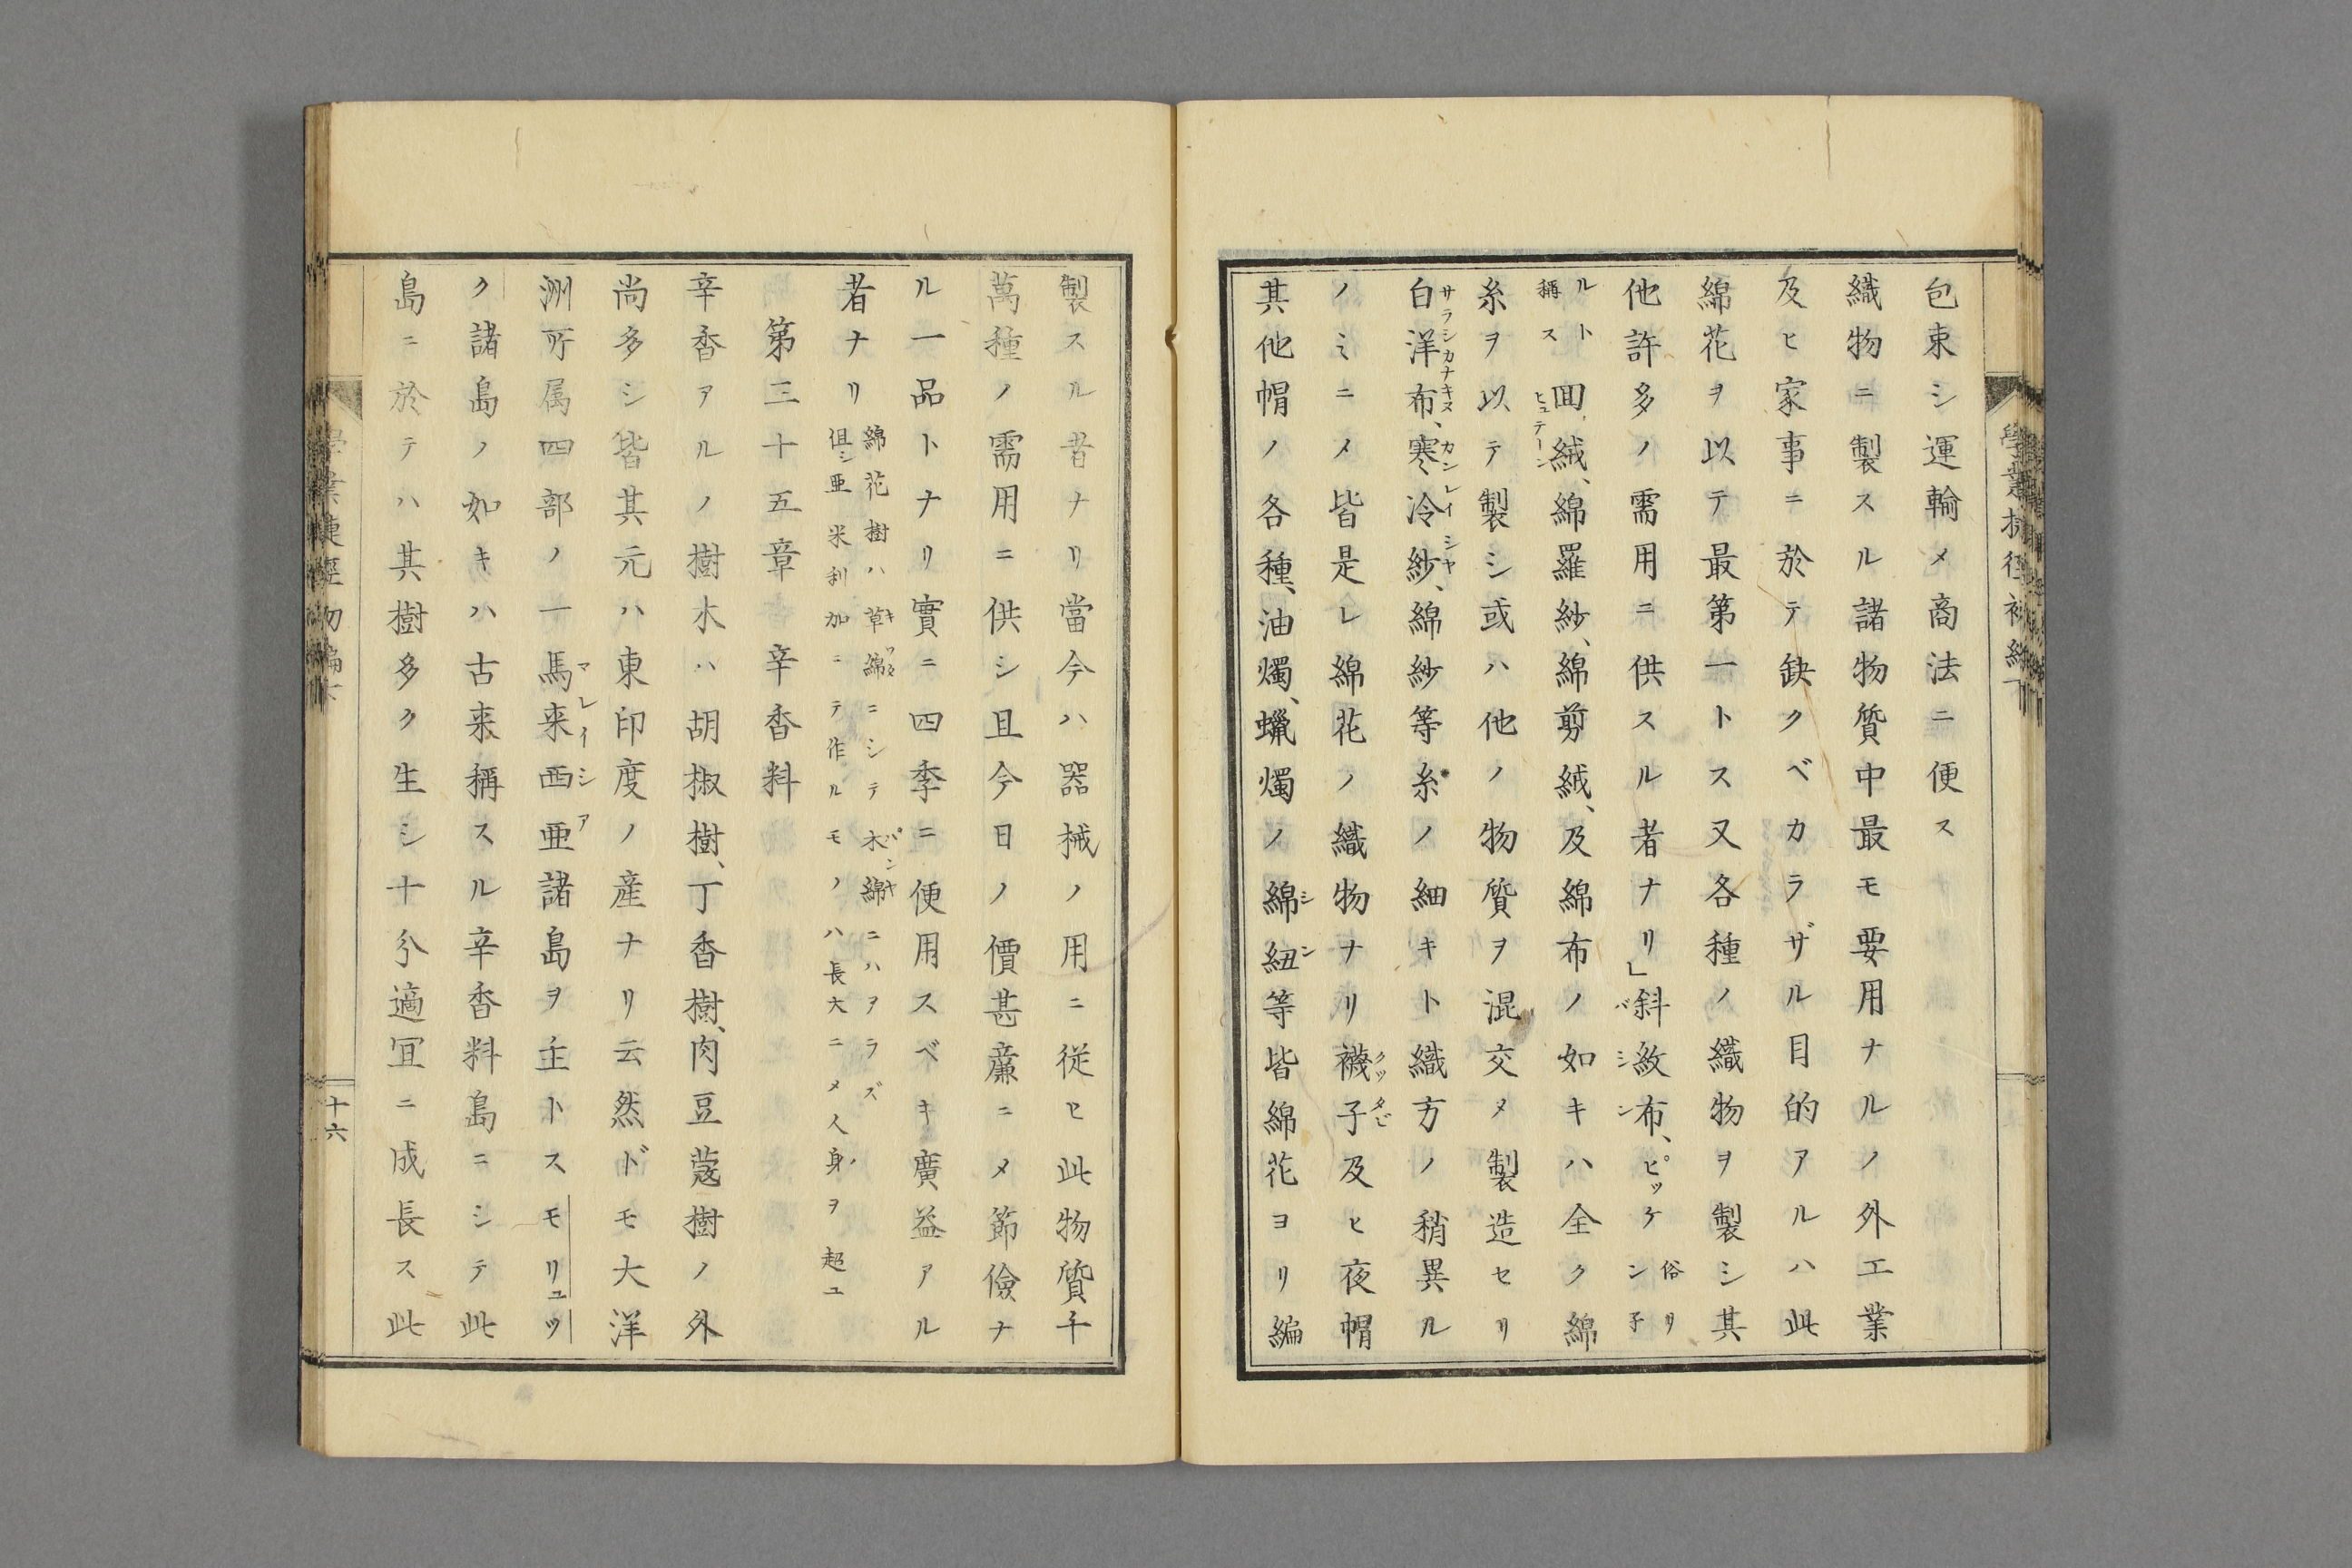 包束シ運輸メ商法ニ便ス
織物ニ製スル諸物質中最モ要用ナルノ外工業
及ヒ家事ニ於テ缺クベカラザル目的アルハ此
綿花ヲ以テ最第一トス又各種ノ織物ヲ製シ其
他許多ノ需用ニ供スル者ナリ」斜紋布、ピッケ
バシン
俗リ
ン子
ルト
稱ス
面絨、綿羅紗、綿剪絨、及綿布ノ如キハ全ク綿
ヒュテーン
糸ヲ以テ製シ或ハ他ノ物質ヲ混交メ製造セリ
白洋布、寒冷紗、綿紗等糸ノ細キト織方ノ稍異ル
サラシカナキヌ カンレイシヤ
ノミニメ皆是レ綿花ノ織物ナリ襪子及ヒ夜帽
クツタビ
其他帽ノ各種、油燭、蠟燭ノ綿紐等皆綿花ヨリ編
シン
製スル者ナリ當今ハ器械ノ用ニ従ヒ此物質千
萬種ノ需用ニ供シ且今日ノ價甚廉ニメ節儉ナ
ル一品トナリ實ニ四季ニ便用スベキ廣益アル
者ナリ
綿花樹ハ草綿ニシテ木綿ニハアラズ
キワタ パンヤ
但シ亜米利加ニテ作ルモノハ長大ニメ人身ヲ超ユ
第三十五章 辛香料
辛香アルノ樹木ハ胡椒樹、丁香樹、肉豆蔲樹ノ外
尚多シ皆其元ハ東印度ノ産ナリ云然ドモ大洋
洲所属四部ノ一馬来西亜諸島ヲ主トスモリュツ
マレイシア
ク諸島ノ如キハ古来稱スル辛香料島ニシテ此
島ニ於テハ其樹多ク生シ十分適冝ニ成長ス此
十六